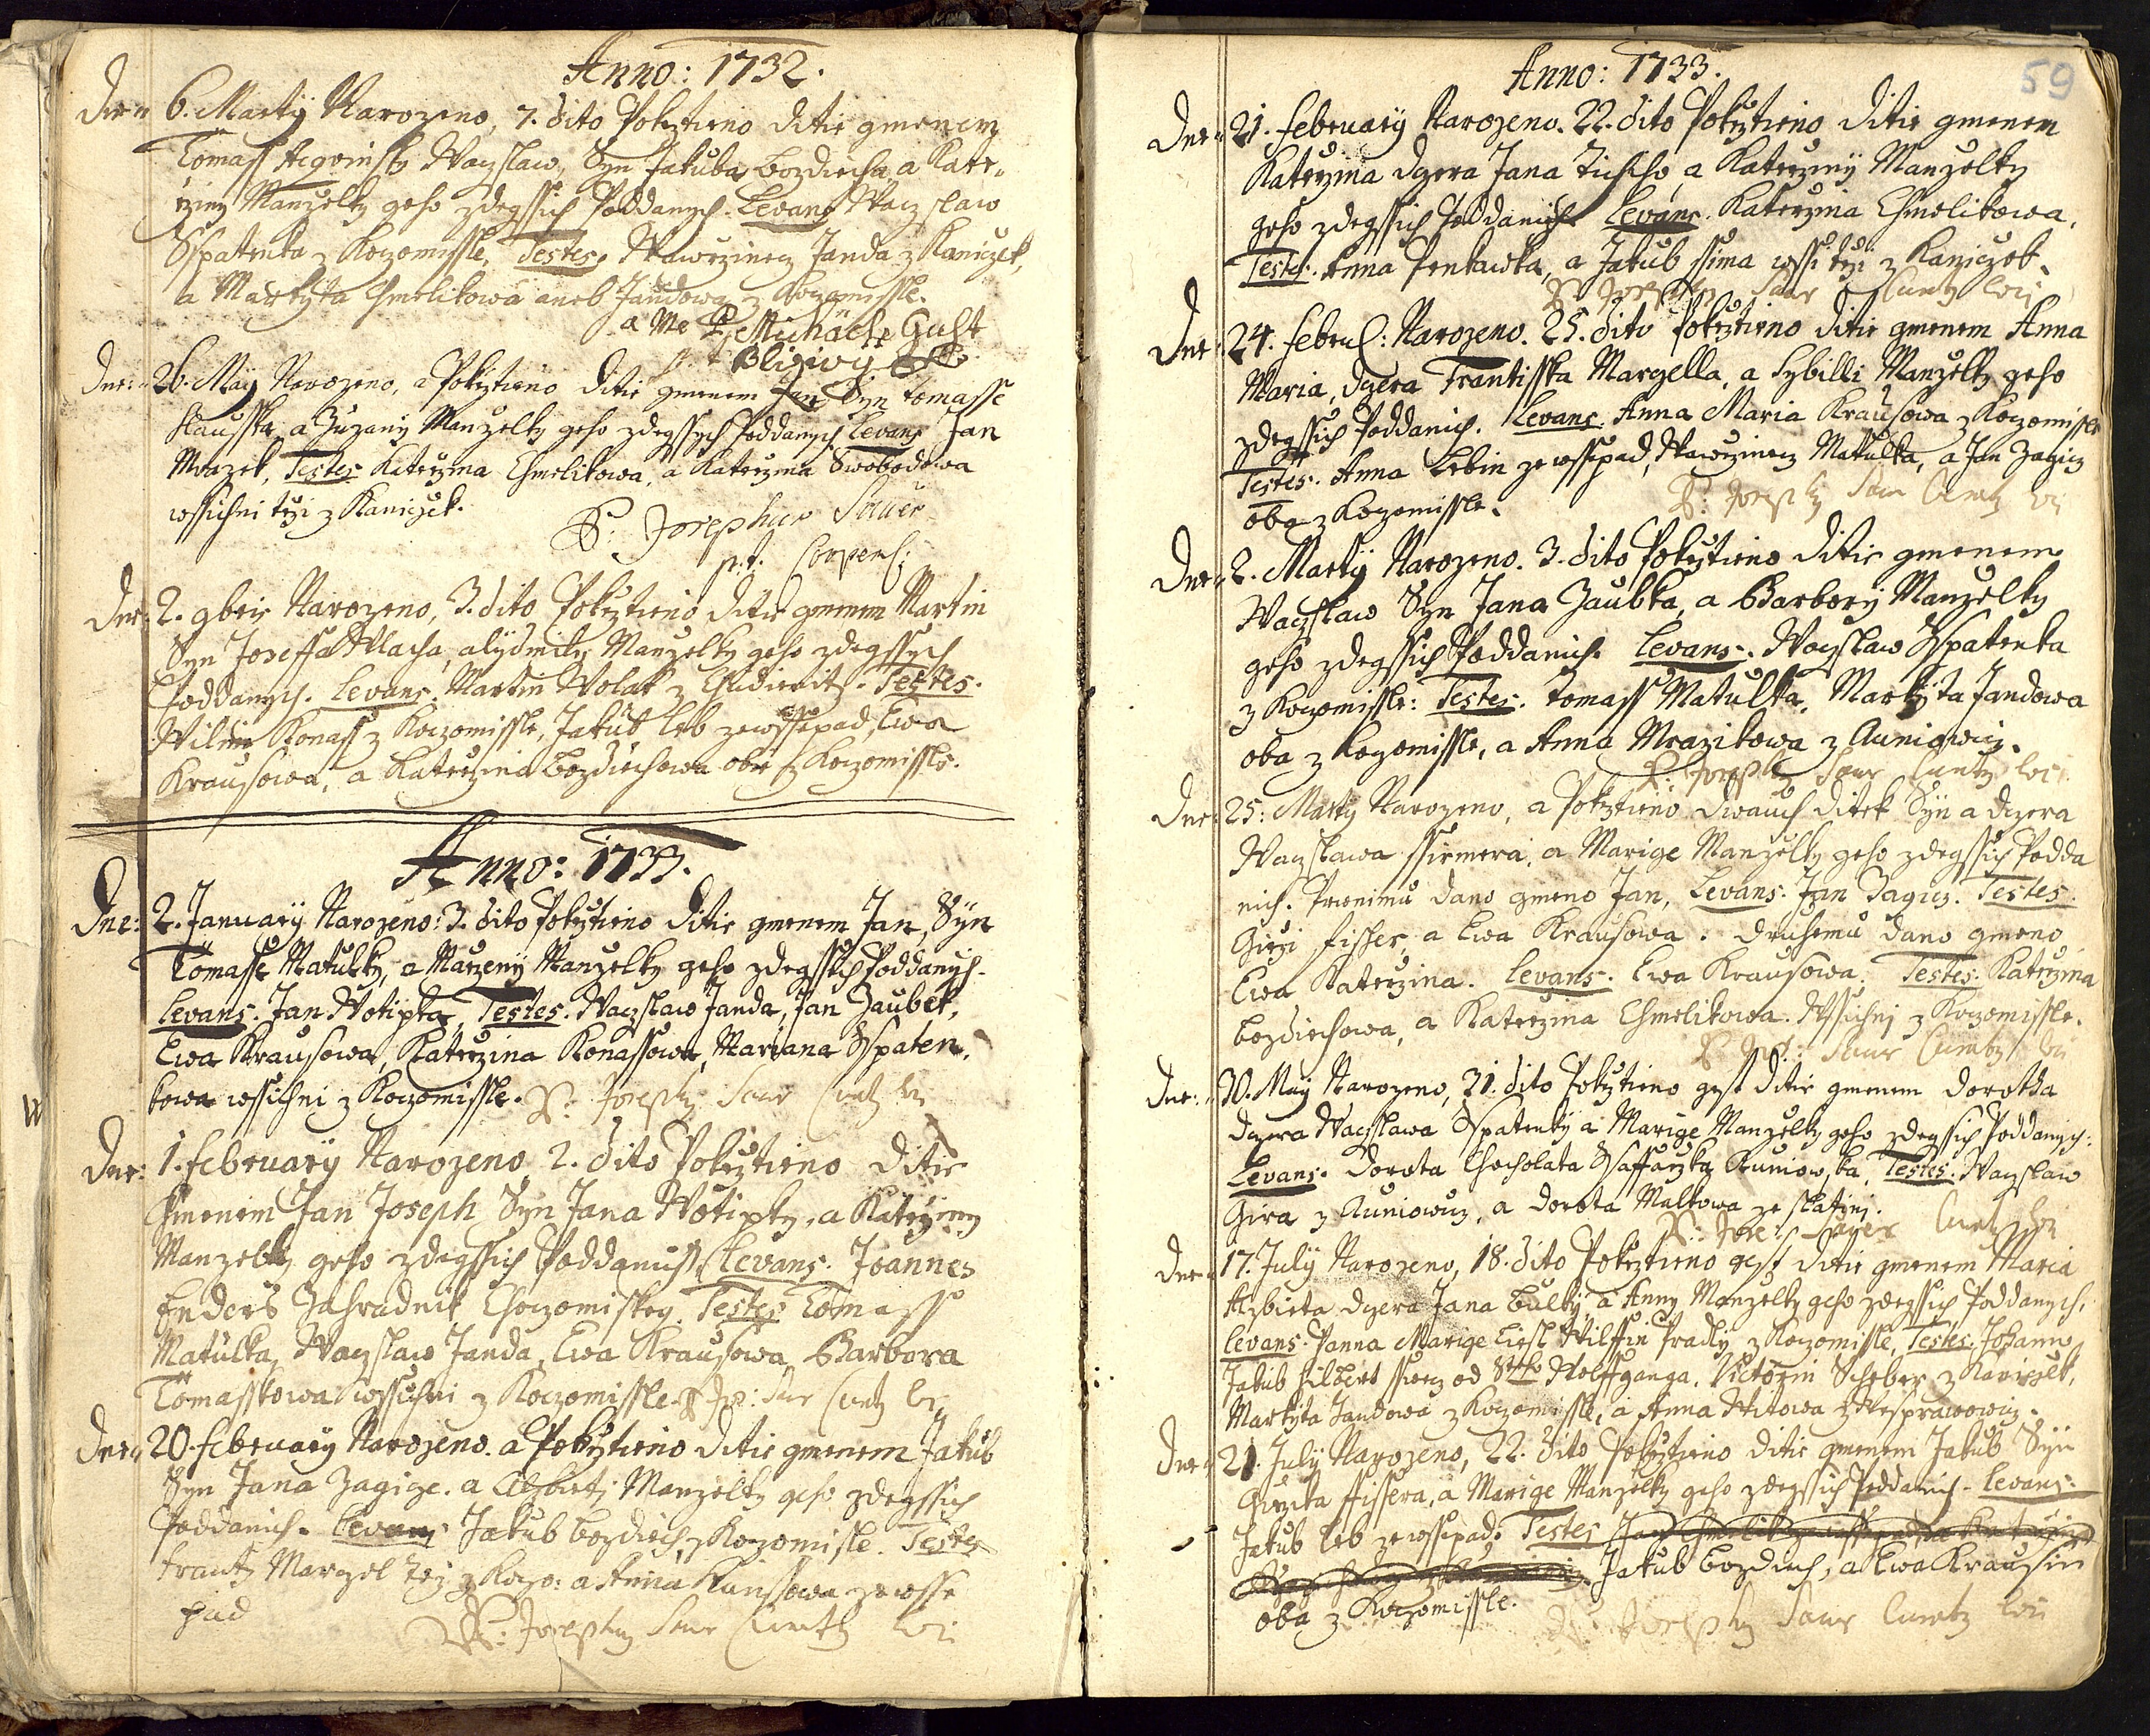 Anno: 1732.
Dne 6. Martij Narozeno, 7. dito Pokrztieno ditie gmenem
Tomass Waczslaw, Syn Jakuba Bozdiecha, a Kate-
rziny Manzelky geho zdegssich Poddanych. Levans Waczslaw
Sspatenka z Koczomissle, Testes. Wawrzinecz Janda z Kaniczek,
a Markyta Chmelikowa aneb Jandowa z Koczomissle.
a me P. Michaele
Dne: 26. Maÿ Narozeno, a Pokrztieno ditie gmenem Jan Syn Tomasse
a Zuzany Manzelky geho zdegssych Poddanych Levans Jan
Mrazek, Testes Katerzina Chmelikowa, a Katerzina Swobodowa
wssichni tyzi z Kaniczek.
P: Josephus Sauer
p.t.
Dne: 2. 9bris Narozeno, 3. dito Pokrztieno ditie gmenem Martin
Syn Joseffa Wlacha, a Lydmily Manzelky geho zdegssych
Poddanych. Levans. Martin Wolak z Testes.
Wilim Konass z Koczomissle, Jakub Leb zewssepad, Ewa
Krausowa, a Katerzina Bozdiechowa obie z Koczomissle.
Anno: 1733.
Dne: 2. Januarÿ Narozeno: 3. dito Pokrztieno ditie gmenem Jan, Syn
Tomasse Matulky, a Manzelky geho zdegssich Poddanych.
Levans. Jan Wotipka, Testes. Waczslaw Janda, Jan Zaubek,
Ewa Krausowa, Katerzina Konassowa, Mariana Sspaten-
kowa wssichni z Koczomissle. P: Josephq Saur
Dne: 1. februarÿ Narozeno 2. dito Pokrztieno ditie
Gmenem Jan Joseph Syn Jana Wotipky, a Katerziny
Manzelky geho zdegssich Poddanich Levans. Joannes
Enders Zahradnik Choczomiskey. Testes Tomass
Matulka, Waczslaw Janda, Ewa Krausowa, Barbora
Tomasskowa wssichni z Koczomissle. P. Jos: Saur
Dne 20. februarÿ Narozeno. a Pokrztieno ditie gmenem Jakub
Syn Jana Zagicze. a Alzbiety Manzelky geho zdegssich
Poddanich. Levans Jakub Bozdiech z Koczomisle. Testes
Frantz Marzel tyz z Kocz: a Anna Kunssowa zewsse
pad
P: Josephq Saur Curatq
59
Anno: 1733.
Dne 21. februarÿ Narozeno. 22. dito Pokrztieno ditie gmenem
Katerzina dczera Jana Ticheho, a Katerziny Manzelky
geho zdegssich Poddanich Levans. Katerzina Chmelikowa,
Testes. Anna Penkawka, a Jakub ssima wssi tyzi z Kaniczek.
P: Josephq Saur Curatq
Dne: 24. Narozeno. 25. dito Pokrztieno ditie gmenem Anna
Maria, dczera Frantisska Margella, a Sybilli Manzelky geho
zdegssich Poddanich. Levans. Anna Maria Krausowa z Koczomissle
Testes. Anna Lebin zewssepad, Wawrzinecz Matulka, a Jan Zagicz
oba z Koczomissle.
P: Josephq Saur Curatq
Dne 2. Martÿ Narozeno. 3. dito Pokrztieno ditie gmenem
Waczslaw Syn Jana Zaubka, a Barbory Manzelky
geho zdegssich Poddanich. Levans. Waczslaw Sspatenka
z Koczomissle: Testes. Tomass Matulka, Markyta Jandowa
oba z Koczomissle, a Anna Mrazikowa z Auniowicz.
P: Josephq Saur Curatq
Dne: 25: Martÿ Narozeno, a Pokrztieno dwauch ditek Syn a dczera
Waczslawa ssirmera, a Marige Manzelky geho zdegssich Podda
nich. Prwnimu dano gmeno Jan, Levans. Jan Zagicz. Testes.
Girzi fisser, a Ewa Krausowa. druhemu dano gmeno
Ewa Katerzina. Levans. Ewa Krausowa. Testes. Katerzina
bozdiechowa, a Katerzina Chmelikowa. Wssichni z Koczomissle.
P. Jos: Saur Curatq
Dne: 30. Maÿ Narozeno, 31. dito Pokrztieno gest ditie gmenem Dorotha
dczera Waczslawa Sspatenky a Marige Manzelky geho zdegssich Poddanych:
Levans. Dorota Chocholata Ssaffarzka Testes. Waczslaw
Gira z Auniowicz, a Dorota Malkowa ze slatini.
P: Jos: Sauer Curatq
Dne 17. Julÿ Narozeno, 18. dito Pokrztieno gest ditie gmenem Maria
Alzbieta dczera Jana Bulky, a Anny Manzelky geho zdegssich Poddanych,
Levans. Panna Marige z Koczomissle, Testes. Johann
Jakub hilbert od Wolffganga. Victorin Schober z Kaniczek,
Markyta Jandowa z Koczomissle, a Anna Witowa z Wesprawowicz.
Dne 21. Julÿ Narozeno, 22. dito Pokrztieno ditie gmenem Jakub Syn
Girzika ffissera, a Marige Manzelky geho zdegssich Poddanich. Levans.
Jakub Leb zewssepad. Testes
Jakub Bozdiech, a Ewa Krausin
oba z Koczomissle.
P: Josephq Saur Curatq